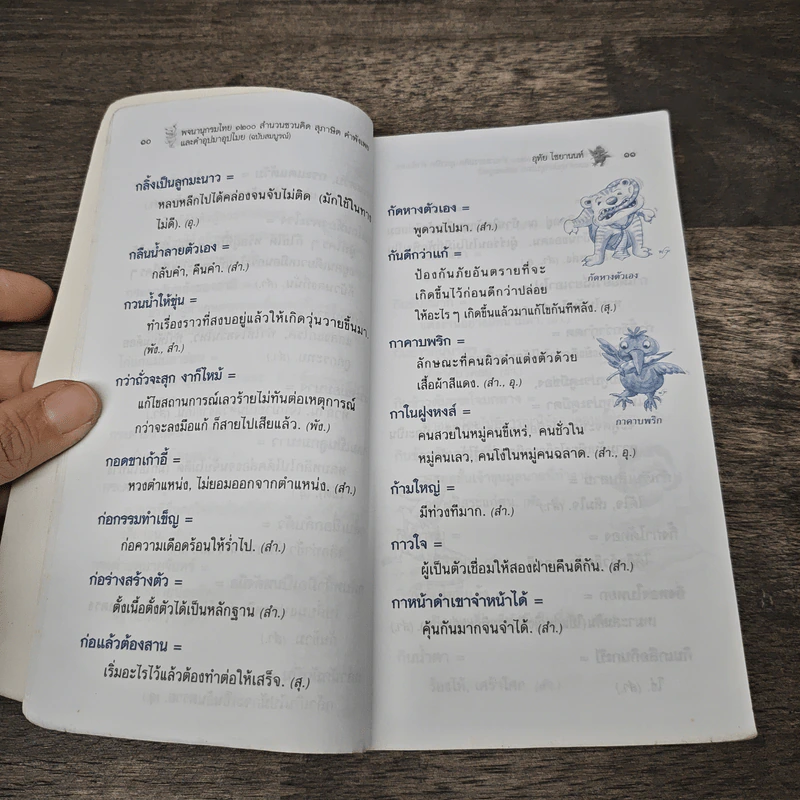 ๑๐
พจนานุกรมไทย ๑๒๐๐ สำนวนชวนคิด สุภาษิต คำพังเพย
และคำอุปมาอุปไมย (ฉบับสมบูรณ์)
กลิ้งเป็นลูกมะนาว =
หลบหลีกไปได้คล่องจนจับไม่ติด (มักใช้ในทาง
ไม่ดี). (อุ.)
กลืนน้ำลายตัวเอง =
กลับคำ, คืนคำ. (สำ.)
กวนน้ำให้ขุ่น =
ทำเรื่องราวที่สงบอยู่แล้วให้เกิดวุ่นวายขึ้นมา.
(พัง., สำ.)
กว่าถั่วจะสุก งาก็ไหม้ =
แก้ไขสถานการณ์เลวร้ายไม่ทันต่อเหตุการณ์
กว่าจะลงมือแก้ ก็สายไปเสียแล้ว. (พัง.)
กอดขาเก้าอี้ =
หวงตำแหน่ง, ไม่ยอมออกจากตำแหน่ง. (สำ.)
ก่อกรรมทำเข็ญ =
ก่อความเดือดร้อนให้ร่ำไป. (สำ.)
ก่อร่างสร้างตัว =
ตั้งเนื้อตั้งตัวได้เป็นหลักฐาน (สำ.)
ก่อแล้วต้องสาน =
เริ่มอะไรไว้แล้วต้องทำต่อให้เสร็จ. (สุ.)
อุทัย ไชยานนท์
๑๑
กัดหางตัวเอง =
พูดวนไปมา. (สำ.)
กันดีกว่าแก้ =
ป้องกันภัยอันตรายที่จะ
เกิดขึ้นไว้ก่อนดีกว่าปล่อย
ให้อะไร ๆ เกิดขึ้นแล้วมาแก้ไขกันทีหลัง. (สุ.)
กัดหางตัวเอง
กาคาบพริก =
ลักษณะที่คนผิวดำแต่งตัวด้วย
เสื้อผ้าสีแดง. (สำ., อุ.)
กาคาบพริก
กาในฝูงหงส์ =
คนสวยในหมู่คนขี้เหร่, คนชั่วใน
หมู่คนเลว, คนโง่ในหมู่คนฉลาด. (สำ., อุ.)
ก้ามใหญ่ =
มีท่วงทีมาก. (สำ.)
กาวใจ =
ผู้เป็นตัวเชื่อมให้สองฝ่ายคืนดีกัน. (สำ.)
กาหน้าดำเขาจำหน้าได้ =
คุ้นกันมากจนจำได้. (สำ.)